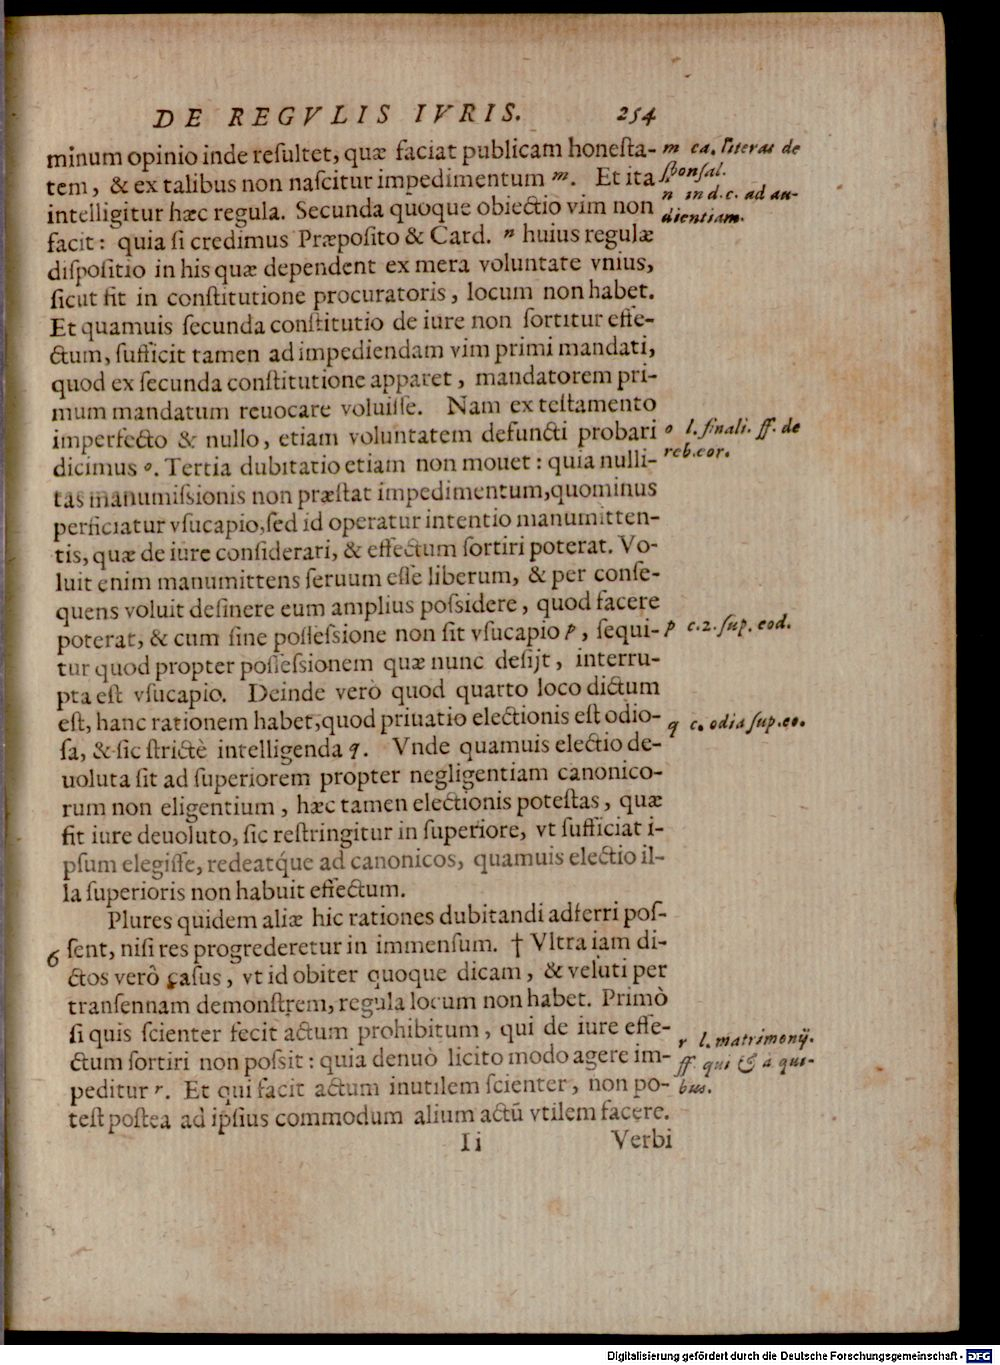 DE REGVLIS IVRIS. 254
minum opinio inde reſultet, quæ faciat publicam honeſta-
tem, & ex talibus non naſcitur impedimentum m. Et ita
intelligitur hæc regula. Secunda quoque obiectio vim non
facit: quia ſi credimus Præpoſito & Card. n huius regulæ
diſpoſitio in his quæ dependent ex mera voluntate vnius,
ſicut fit in conſtitutione procuratoris, locum non habet.
Et quamuis ſecunda conſtitutio de iure non ſortitur effe-
ctum, ſufficit tamen ad impediendam vim primi mandati,
quod ex ſecunda conſtitutione apparet, mandatorem pri-
mum mandatum reuocare voluiſſe. Nam ex teſtamento
imperfecto & nullo, etiam voluntatem defuncti probari
dicimus o. Tertia dubitatio etiam non mouet: quia nulli-
tas manumiſsionis non præſtat impedimentum, quominus
perficiatur vſucapio, ſed id operatur intentio manumitten-
tis, quæ de iure conſiderari, & effectum ſortiri poterat. Vo-
luit enim manumittens ſeruum eſſe liberum, & per conſe-
quens voluit deſinere eum amplius poſsidere, quod facere
poterat, & cum ſine poſſeſsione non ſit vſucapio p, ſequi-
tur quod propter poſſeſsionem quæ nunc deſijt, interru-
pta eſt vſucapio. Deinde verò quod quarto loco dictum
eſt, hanc rationem habet, quod priuatio electionis eſt odio-
ſa, & ſic ſtrictè intelligenda q. Vnde quamuis electio de-
uoluta ſit ad ſuperiorem propter negligentiam canonico-
rum non eligentium, hæc tamen electionis poteſtas, quæ
fit iure deuoluto, ſic reſtringitur in ſuperiore, vt ſufficiat i-
pſum elegiſſe, redeatq́ue ad canonicos, quamuis electio il-
la ſuperioris non habuit effectum.
Plures quidem aliæ hic rationes dubitandi adferri poſ-
6 ſent, niſi res progrederetur in immenſum. † Vltra iam di-
ctos verò caſus, vt id obiter quoque dicam, & veluti per
tranſennam demonſtrem, regula locum non habet. Primò
ſi quis ſcienter fecit actum prohibitum, qui de iure effe-
ctum ſortiri non poſsit: quia denuò licito modo agere im-
peditur r. Et qui facit actum inutilem ſcienter, non po-
teſt poſtea ad ipſius commodum alium actũ vtilem facere.
Ii Verbi
m ca. literas de
ſponſal.
n in d. c. ad au-
dientiam.
o l. finali. ff. de
reb. eor.
p c. 2. ſup. eod.
q c. odia ſup. eo.
r l. matrimonij.
ff. qui & à qui-
bus.
Digitalisierung gefördert durch die Deutsche Forschungsgemeinschaft - DFG